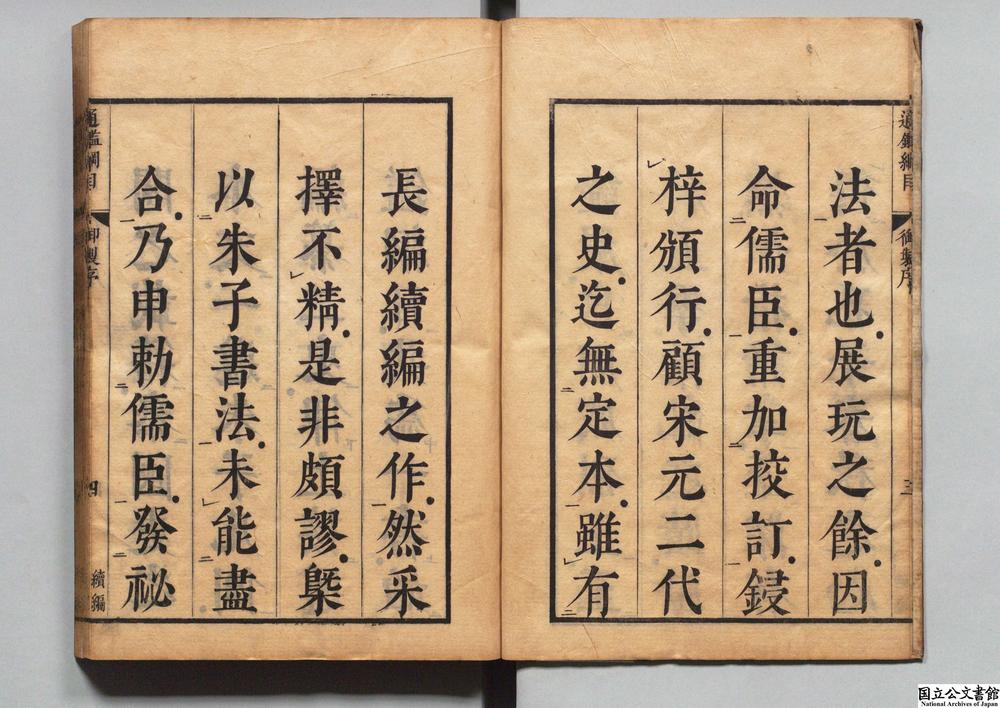 通鑑綱目
御製序
三
法者也。展玩之餘。因
命儒臣。重加挍訂。鋟
梓頒行。顧宋元二代
之史。迄無定本。雖有
長編續編之作。然采
擇不精。是非頗謬。槩
以朱子書法。未能盡
合。乃申勅儒臣。發祕
通鑑綱目
御製序
四
續編
国立公文書館
National Archives of Japan